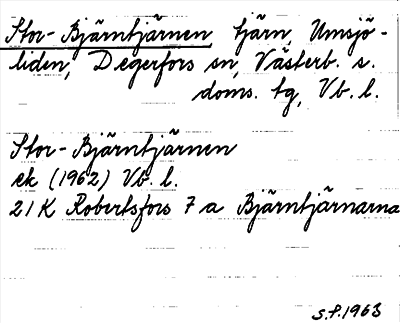 Stor-Bjärntjärnen, tjärn, Umsjö-
liden, Degerfors sn, Västerb. s.
doms. tg, Vb. l.
Stor-Bjärntjärnen
ek (1962) Vb. l.
21 K Robertsfors 7 a Bjärntjärnarna
S.P. 1963